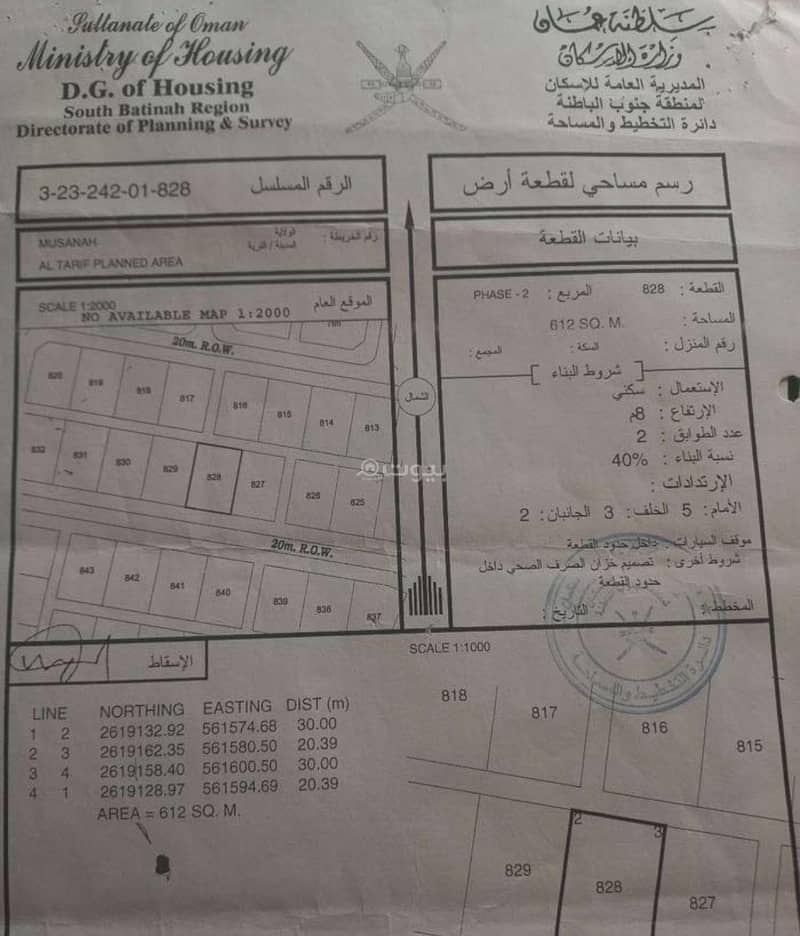 Sultanate of Oman
Ministry of Housing
D.G. of Housing
South Batinah Region
Directorate of Planning & Survey
سلطنة عمان
وزارة الإسكان
المديرية العامة للاسكان
لمنطقة جنوب الباطنة
دائرة التخطيط والمساحة
الرقم المسلسل 3-23-242-01-828
رقم الخريطة : الولاية MUSANAH
المدينة / القرية AL TARIF PLANNED AREA
رسم مساحي لقطعة أرض
بيانات القطعة
القطعة : 828 المربع : PHASE - 2
المساحة : 612 SQ. M.
رقم المنزل : السكة : المجمع :
شروط البناء
الإستعمال : سكني
الإرتفاع : 8م
عدد الطوابق : 2
نسبة البناء : 40%
الإرتدادات :
الأمام: 5 الخلف: 3 الجانبان: 2
موقف السيارات : داخل حدود القطعة
شروط أخرى : تصميم خزان الصرف الصحي داخل
حدود القطعة
المخطط : التاريخ :
دائرة التخطيط والمساحة
الموقع العام SCALE 1:2000
NO AVAILABLE MAP 1:2000
20m. R.O.W.
820 819 818 817 816 815 814 813
832 831 830 829 828 827 826 825
20m. R.O.W.
843 842 841 840 839 838 837
الشمال
بيوت
الإسقاط
LINE NORTHING EASTING DIST (m)
1 2 2619132.92 561574.68 30.00
2 3 2619162.35 561580.50 20.39
3 4 2619158.40 561600.50 30.00
4 1 2619128.97 561594.69 20.39
AREA = 612 SQ. M.
SCALE 1:1000
818 817 816 815
2 3
829 828 827